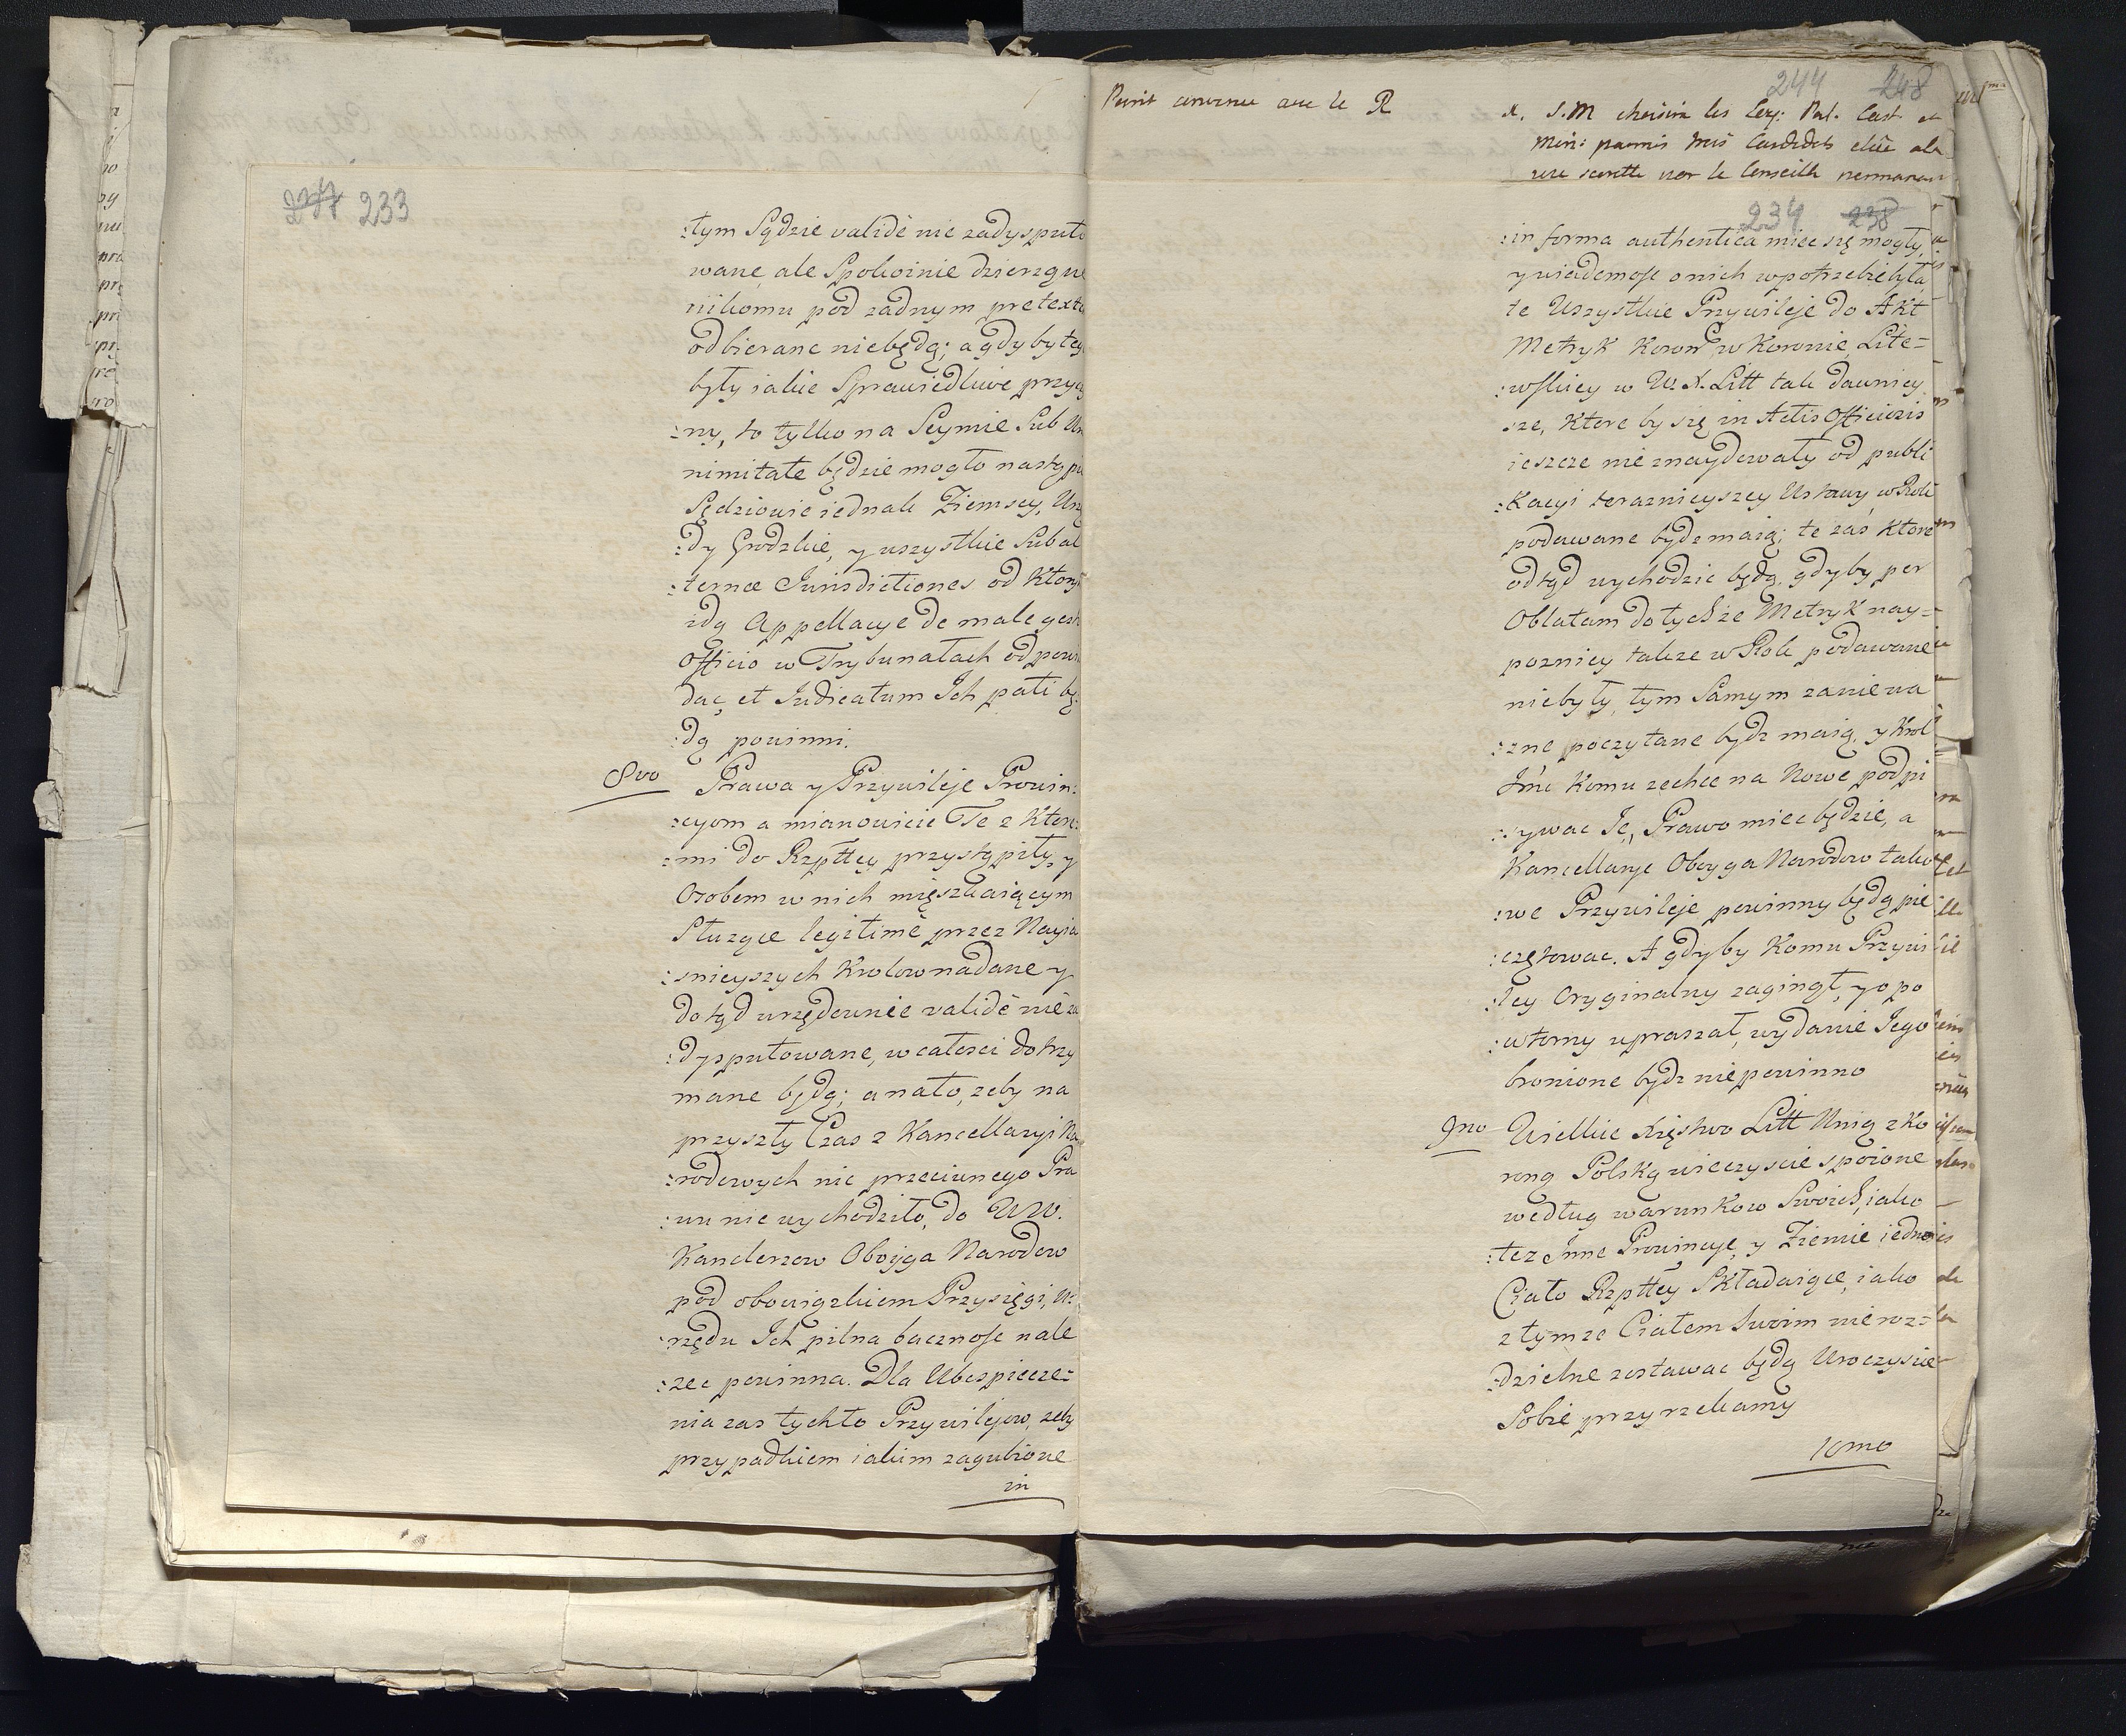 237 233
:tym Sądzie validè nie zadysputo
wane, ale Spokoinie dzierzgne
nikomu pod zadnym pretexte
odbierane niebędą; a gdyby tey
były iakie Sprawiedliwe przyc
:ny, to tylko na Seymie Sub Un
nimitate będzie mogło nastąpi
Sędziowie iednak Ziemscy, Urz
:dy Grodzkie, y wszystkie Subal
:ternæ Jurisdictiones od Ktory
idą Appellacye de male gest
Officio w Trybunałach odpowi
dac, et Judicatum Ich pati bę
:dą powinni.
8vo Prawa y Przywileje Prowin:
:cyom a mianowicie Te z Ktore:
:mi do Rzpttey przystąpiły, y
Osobom w nich mięszkaiącym
Służące legitimè przez Nayia
:snieyszych Krolow nadane y
dotąd urzędownie validè nie za
:dysputowane, w całosci dotrzy
mane będą; a na to, zeby na
przyszły Czas z Kancellaryi Na
:rodowych nic przeciwnego Pra
:wu nie wychodziło, do WW.
Kanclerzow Oboyga Narodow
pod obowiązkiem Przysięgi, U:
:rzędu Ich pilna bacznosc nale
:zec powinna. Dla Ubespiecze=
nia zas tychto Przywilejow, zeby
przypadkiem iakim zagubione
in
Point convenu avec le R
244 248
x. S.M choisira les Sen: Pal. Cast. et
Min: parmis trois Candidats elûs a la
par le Conseille permanan
234 238
:in forma authentica miec się mogły,
y wiadomosc o nich w potrzebie była
te Wszystkie Przywileje do Akt
Metryk Koron w Koronie, Lite=
:wskiey w W.X.Litt tak dawniey
:sze, Ktore by się in Actis Officiozis
ieszcze nie znaydowały od publi
:Kacyi teraznieyszey Ustawy, w Rok
podawane bydz maią; te zaś Ktore
odtąd wychodzic będą, gdyby per
Oblatam do tychze Metryk nay=
pozniey takze w Rok podawane
niebyły, tym Samym za niewa
:zne poczytane bydz maią, y Krol
Jmc Komu zechce na Nowe podpi
:sywac Je, Prawo miec będzie, a
Kancellarye Oboyga Narodow tako
:we Przywileje powinny będą pie
:częstowac. A gdyby Komu Przywi
:ley Oryginalny zaginął, y o po
:wtorny upraszał, wydanie Jego
bronione bydz nie powinno
9no Wielkie Xięstwo Litt Unią z Ko
roną Polską wieczyscie spoione
według warunkow Swoich, iako
:tez Jnne Prowincye, y Ziemie iedno
Ciało Rzpttey Składaiące, iako
z tymze Ciałem Swoim nieroz=
:dzielne zostawac będą Uroczyscie
Sobie przyrzekamy
10mo